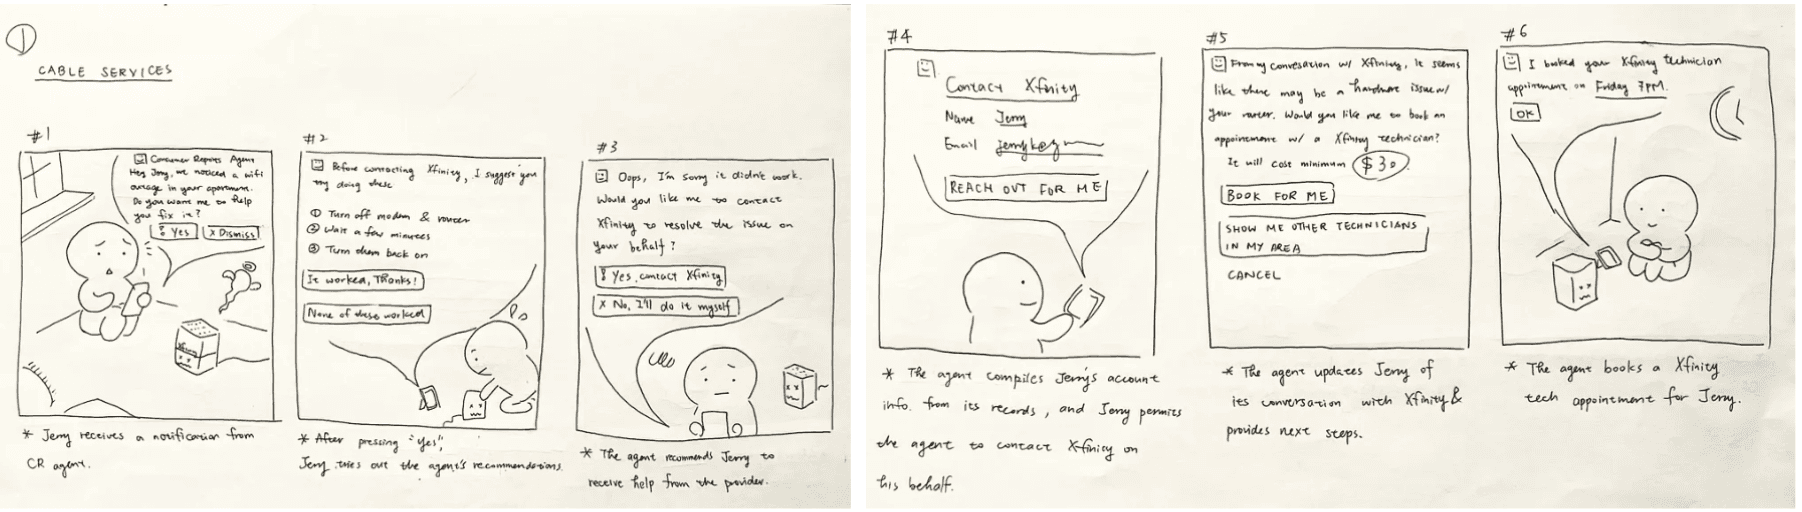 1
CABLE SERVICES
#1
Consumer Reports Agent
Hey Jerry, we noticed a wifi
outage in your apartment.
Do you want me to help
you fix it?
Yes
X Dismiss
xfinity
* Jerry receives a notification from
CR agent.
#2
Before contacting Xfinity, I suggest you
try doing these
① Turn off modem & router
② Wait a few minutes
③ Turn them back on
It worked, Thanks!
None of these worked
* After pressing "Yes",
Jerry tries out the agent's recommendations.
#3
Oops, I'm sorry it didn't work.
Would you like me to contact
Xfinity to resolve the issue on
your behalf?
Yes, contact Xfinity
X No, I'll do it myself
* The agent recommends Jerry to
receive help from the provider.
#4
Contact Xfinity
Name Jerry
Email
REACH OUT FOR ME
* The agent compiles Jerry's account
info. from its records, and Jerry permits
the agent to contact Xfinity on
his behalf.
#5
From my conversation w/ Xfinity, it seems
like there may be a hardware issue w/
your router. Would you like me to book an
appointment w/ a Xfinity technician?
It will cost minimum $30.
BOOK FOR ME
SHOW ME OTHER TECHNICIANS
IN MY AREA
CANCEL
* The agent updates Jerry of
its conversation with Xfinity &
provides next steps.
#6
I booked your Xfinity technician
appointment on Friday 7PM.
OK
* The agent books a Xfinity
tech appointment for Jerry.